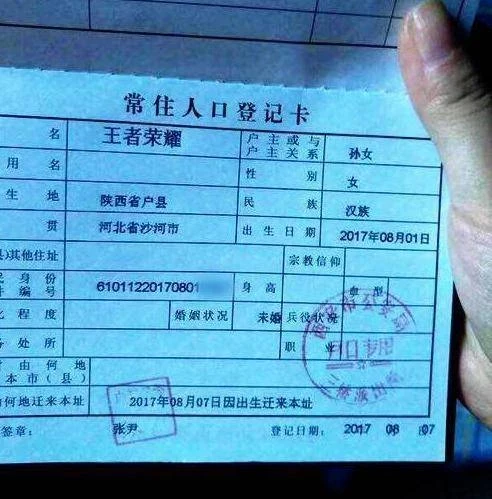 常住人口登记卡
名 王者荣耀 户主或与户主关系 孙女
用名 性别 女
生地 陕西省户县 民族 汉族
贯 河北省沙河市 出生日期 2017年08月01日
其他住址 宗教信仰
身份 件编号 61011220170801 身高 血型
程度 婚姻状况 未婚 兵役状况
务处所 职业
由何地
本市（县）
何地迁来本址 2017年08月07日因出生迁来本址
签章： 张尹 登记日期： 2017 08 07
西安市公安局
户口专用
派出所